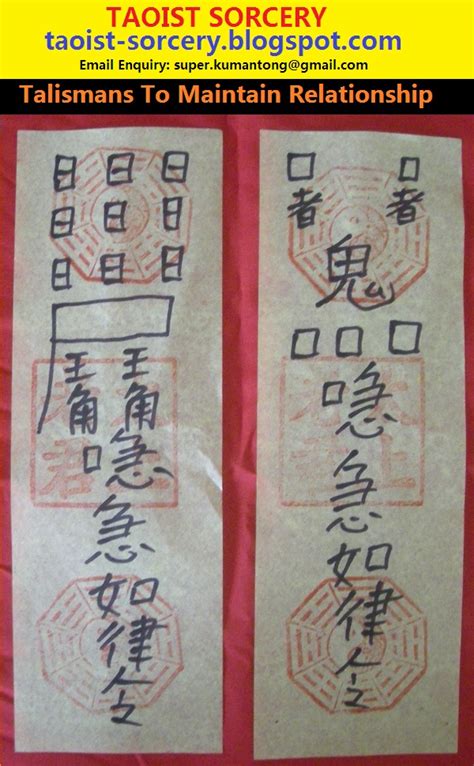 TAOIST SORCERY
taoist-sorcery.blogspot.com
Email Enquiry: super.kumantong@gmail.com
Talismans To Maintain Relationship
日日日
日日日
日日日
王角 王角
喼急如律令
口 口
者 者
鬼
口口口
喼急如律令